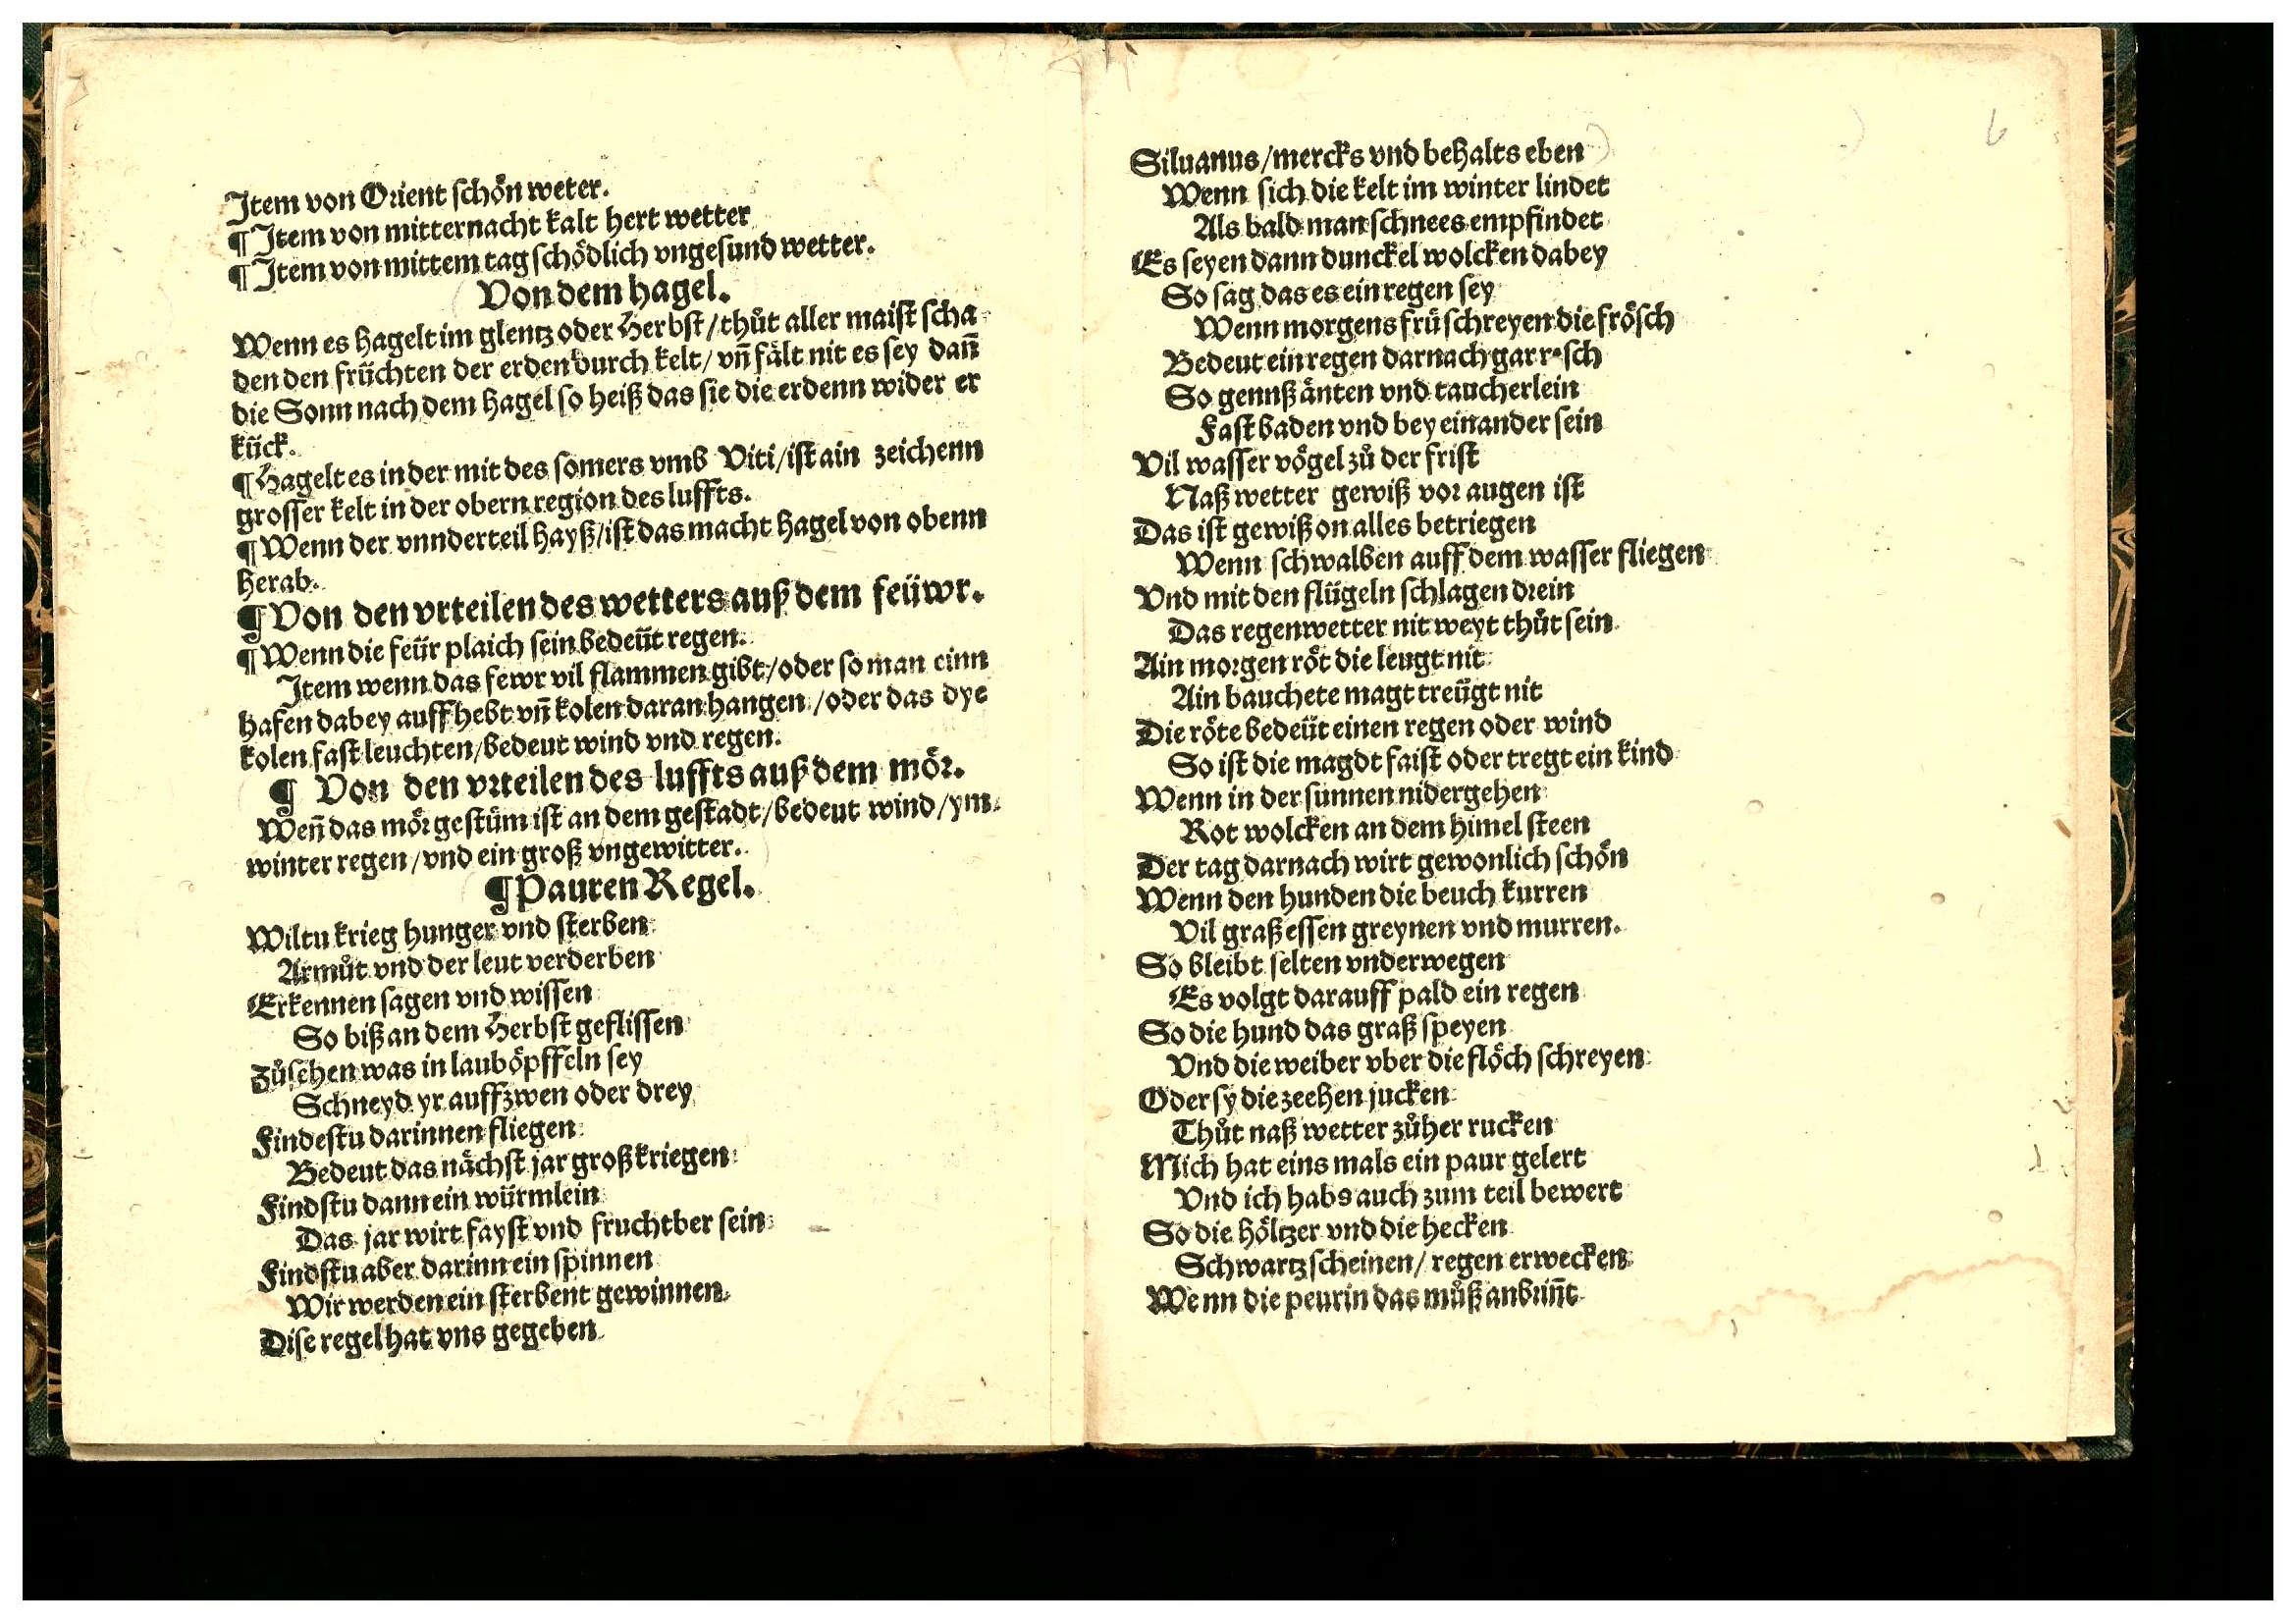 Item von Orient schön weter.
¶ Item von mitternacht kalt hert wetter
¶ Item von mittem tag schödlich vngesund wetter.
Von dem hagel.
Wenn es hagelt im glentz oder Herbst / thůt aller maist scha-
den den früchten der erden durch kelt / vn̄ fält nit es sey dan̄
die Sonn nach dem hagel so heiß das sie die erdenn wider er
kück.
¶ Hagelt es in der mit des somers vmb Viti / ist ain zeichenn
grosser kelt in der obern region des luffts.
¶ Wenn der vnnderteil hayß / ist das macht hagel von obenn
herab.
¶ Von den vrteilen des wetters auß dem feüwr.
¶ Wenn die feür plaich sein bedeüt regen.
Item wenn das fewr vil flammen gibt / oder so man einn
hafen dabey auff hebt vn̄ kolen daran hangen / oder das dye
kolen fast leuchten / bedeut wind vnd regen.
¶ Von den vrteilen des luffts auß dem mör.
Wen̄ das mör gestüm ist an dem gestadt / bedeut wind / ym
winter regen / vnd ein groß vngewitter.
¶ Pauren Regel.
Wiltu krieg hunger vnd sterben
Armůt vnd der leut verderben
Erkennen sagen vnd wissen
So biß an dem Herbst geflissen
Zůsehen was in lauböpffeln sey
Schneyd yr auff zwen oder drey
Findestu darinnen fliegen
Bedeut das nächst jar groß kriegen
Findstu dann ein würmlein
Das jar wirt fayst vnd fruchtber sein
Findstu aber darinn ein spinnen
Wir werden ein sterbent gewinnen
Dise regel hat vns gegeben
6
Siluanus / mercks vnd behalts eben
Wenn sich die kelt im winter lindet
Als bald man schnees empfindet
Es seyen dann dunckel wolcken dabey
So sag das es ein regen sey
Wenn morgens frü schreyen die frösch
Bedeut ein regen darnach
So gennß änten vnd taucherlein
Fast baden vnd bey einander sein
Vil wasser vögel zů der frist
Naß wetter gewiß vor augen ist
Das ist gewiß on alles betriegen
Wenn schwalben auff dem wasser fliegen
Vnd mit den flügeln schlagen drein
Das regenwetter nit weyt thůt sein
Ain morgen röt die leugt nit
Ain bauchete magt treügt nit
Die röte bedeüt einen regen oder wind
So ist die magdt faist oder tregt ein kind
Wenn in der sunnen nidergehen
Rot wolcken an dem himel steen
Der tag darnach wirt gewonlich schön
Wenn den hunden die beuch kurren
Vil graß essen greynen vnd murren.
So bleibt selten vnderwegen
Es volgt darauff pald ein regen
So die hund das graß speyen
Vnd die weiber vber die flöch schreyen
Oder sy die zeehen jucken
Thůt naß wetter zůher rucken
Mich hat eins mals ein paur gelert
Vnd ich habs auch zum teil bewert
So die höltzer vnd die hecken
Schwartz scheinen / regen erwecken
Wenn die peurin das můß anbrin̄t